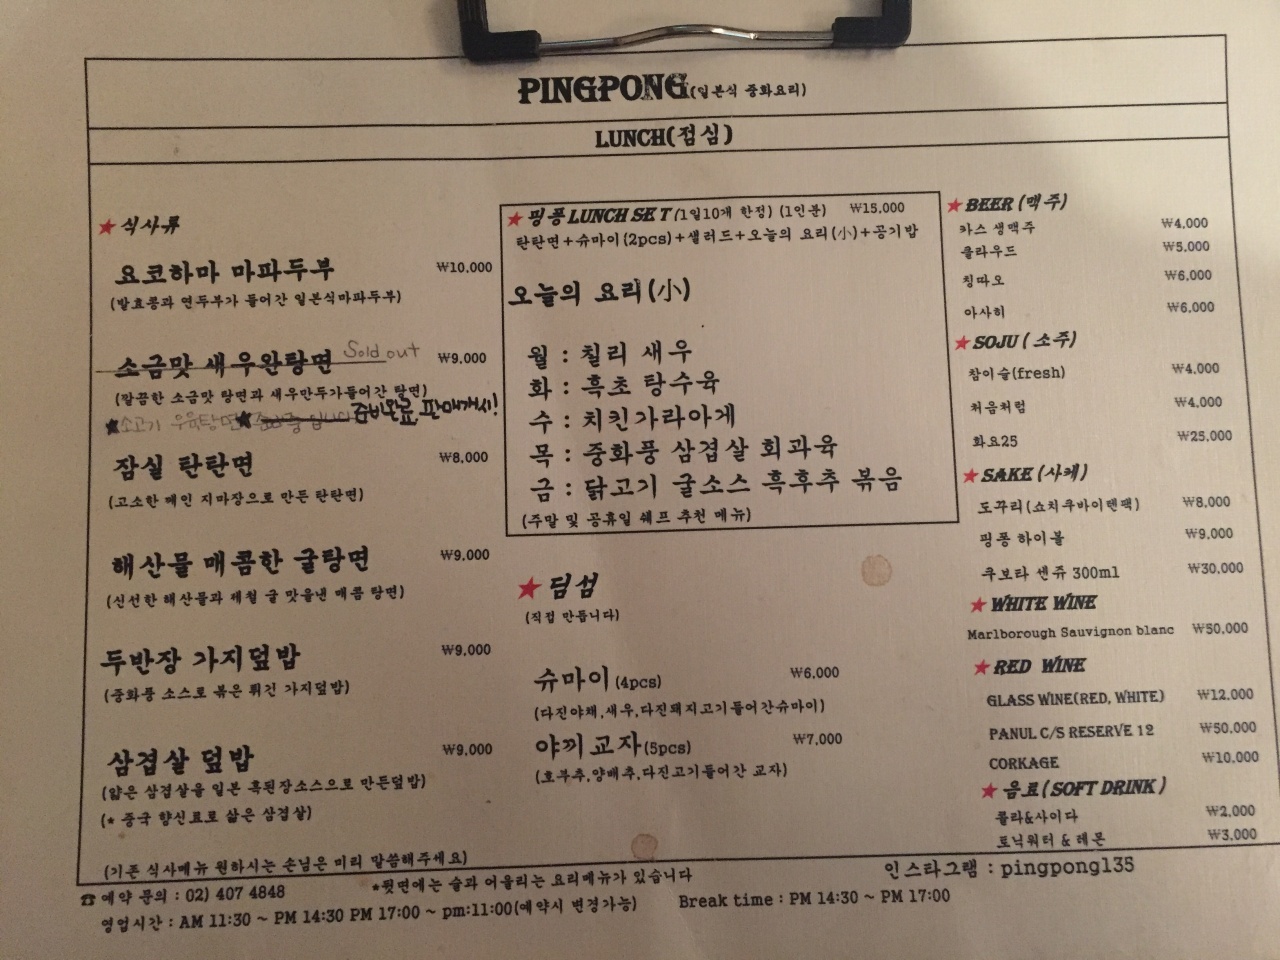 PINGPONG(일본식 중화요리)
LUNCH(점심)
★식사류
요코하마 마파두부 ₩10,000
(발효콩과 연두부가 들어간 일본식마파두부)
소금맛 새우완탕면 Sold out ₩9,000
(깔끔한 소금맛 탕면과 새우만두가들어간 탕면)
★소고기 우육탕면★ 준비중 입니다 준비완료 판매개시!
잠실 탄탄면 ₩8,000
(고소한 메인 지마장으로 만든 탄탄면)
해산물 매콤한 굴탕면 ₩9,000
(신선한 해산물과 제철 굴 맛을낸 매콤 탕면)
두반장 가지덮밥 ₩9,000
(중화풍 소스로 볶은 튀긴 가지덮밥)
삼겹살 덮밥 ₩9,000
(얇은 삼겹살을 일본 흑된장소스으로 만든덮밥)
(* 중국 향신료로 삶은 삼겹살)
(기존 식사메뉴 원하시는 손님은 미리 말씀해주세요)
★핑퐁LUNCH SET(1일10개 한정) (1인분) ₩15,000
탄탄면+슈마이(2pcs)+샐러드+오늘의 요리(小)+공기밥
오늘의 요리(小)
월 : 칠리 새우
화 : 흑초 탕수육
수 : 치킨가라아게
목 : 중화풍 삼겹살 회과육
금 : 닭고기 굴소스 흑후추 볶음
(주말 및 공휴일 쉐프 추천 메뉴)
★딤섬
(직접 만듭니다)
슈마이(4pcs) ₩6,000
(다진야채,새우,다진돼지고기들어간슈마이)
야끼교자(5pcs) ₩7,000
(호부추,양배추,다진고기들어간 교자)
★BEER(맥주)
카스 생맥주 ₩4,000
클라우드 ₩5,000
칭따오 ₩6,000
아사히 ₩6,000
★SOJU(소주)
참이슬(fresh) ₩4,000
처음처럼 ₩4,000
화요25 ₩25,000
★SAKE(사케)
도꾸리(쇼치쿠바이텐팩) ₩8,000
핑퐁 하이볼 ₩9,000
쿠보타 센쥬 300ml ₩30,000
★WHITE WINE
Marlborough Sauvignon blanc ₩50,000
★RED WINE
GLASS WINE(RED, WHITE) ₩12,000
PANUL C/S RESERVE 12 ₩50,000
CORKAGE ₩10,000
★음료(SOFT DRINK)
콜라&사이다 ₩2,000
토닉워터 & 레몬 ₩3,000
☎예약 문의 : 02) 407 4848
*뒷면에는 술과 어울리는 요리메뉴가 있습니다
인스타그램 : pingpong135
영업시간 : AM 11:30 ~ PM 14:30 PM 17:00 ~ pm:11:00(예약시 변경가능) Break time : PM 14:30 ~ PM 17:00